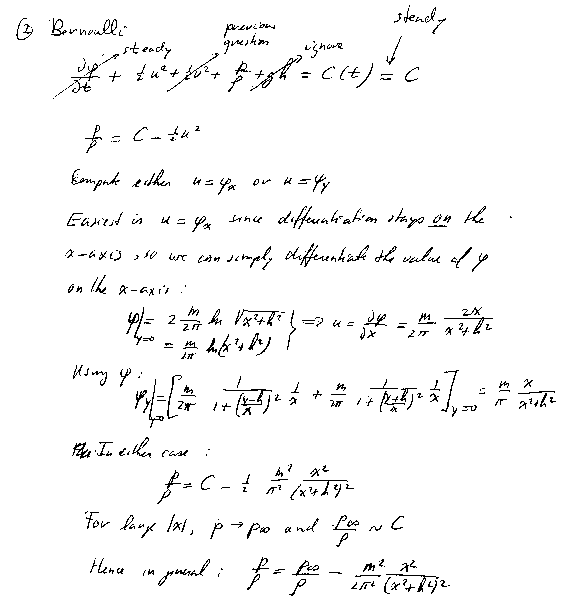 ② Bernoulli
steady previous question ignore steady
∂φ/∂t + ½u² + ½v² + p/ρ + gh = C(t) = C
p/ρ = C - ½u²
Compute either u = φₓ or u = ψᵧ
Easiest is u = φₓ since differentiation stays on the
x-axis, so we can simply differentiate the value of φ
on the x-axis:
φ|y=0 = 2 m/2π ln √(x²+h²) } ⇒ u = ∂φ/∂x = m/2π 2x/(x²+h²)
= m/2π ln(x²+h²)
Using ψ:
ψᵧ|y=0 = [m/2π 1/(1+((y-h)/x)²) 1/x + m/2π 1/(1+((y+h)/x)²) 1/x]y=0 = m/π x/(x²+h²)
In either case:
p/ρ = C - ½ m²/π² x²/(x²+h²)²
For large |x|, p → p∞ and p∞/ρ ~ C
Hence in general: p/ρ = p∞/ρ - m²/2π² x²/(x²+h²)²